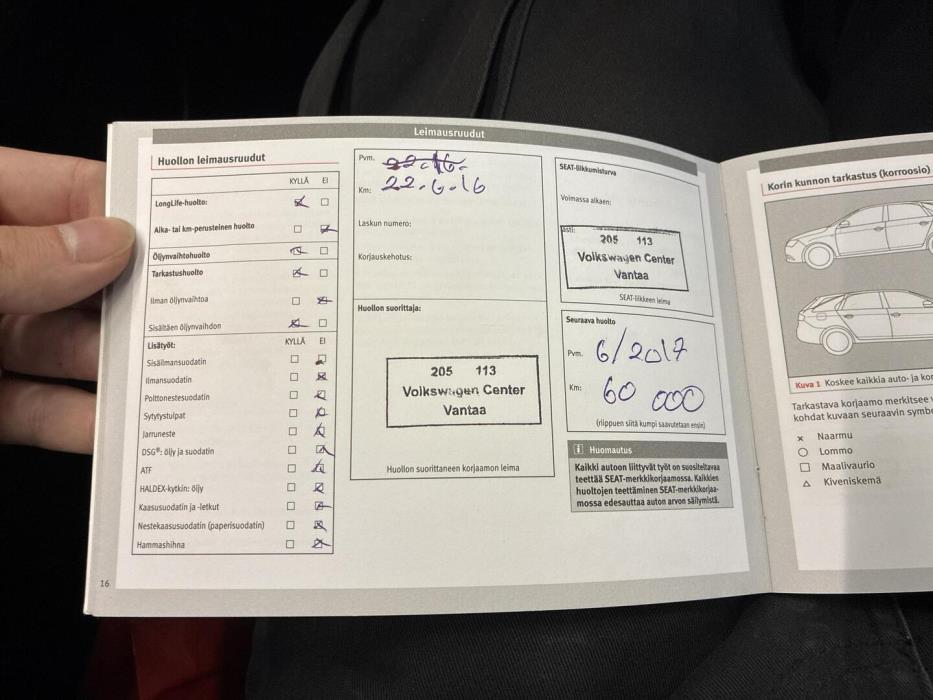 Leimausruudut
Huollon leimausruudut
KYLLÄ EI
LongLife-huolto:
Aika- tai km-perusteinen huolto
Öljynvaihtohuolto
Tarkastushuolto
Ilman öljynvaihtoa
Sisältäen öljynvaihdon
Lisätyöt: KYLLÄ EI
Sisäilmansuodatin
Ilmansuodatin
Polttonestesuodatin
Sytytystulpat
Jarruneste
DSG®: öljy ja suodatin
ATF
HALDEX-kytkin: öljy
Kaasusuodatin ja -letkut
Nestekaasusuodatin (paperisuodatin)
Hammashihna
16
Pvm. 22.16.
Km: 22.6.16
Laskun numero:
Korjauskehotus:
Huollon suorittaja:
205 113
Volkswagen Center
Vantaa
Huollon suorittaneen korjaamon leima
SEAT-liikkumisturva
Voimassa alkaen:
asti:
205 113
Volkswagen Center
Vantaa
SEAT-liikkeen leima
Seuraava huolto
Pvm. 6/2017
Km: 60 000
(riippuen siitä kumpi saavutetaan ensin)
i Huomautus
Kaikki autoon liittyvät työt on suositeltavaa
teettää SEAT-merkkikorjaamossa. Kaikkien
huoltojen teettäminen SEAT-merkkikorjaa-
mossa edesauttaa auton arvon säilymistä.
Korin kunnon tarkastus (korroosio)
Kuva 1 Koskee kaikkia auto- ja
Tarkastava korjaamo merkitsee
kohdat kuvaan seuraavin
× Naarmu
○ Lommo
□ Maalivaurio
△ Kiveniskemä